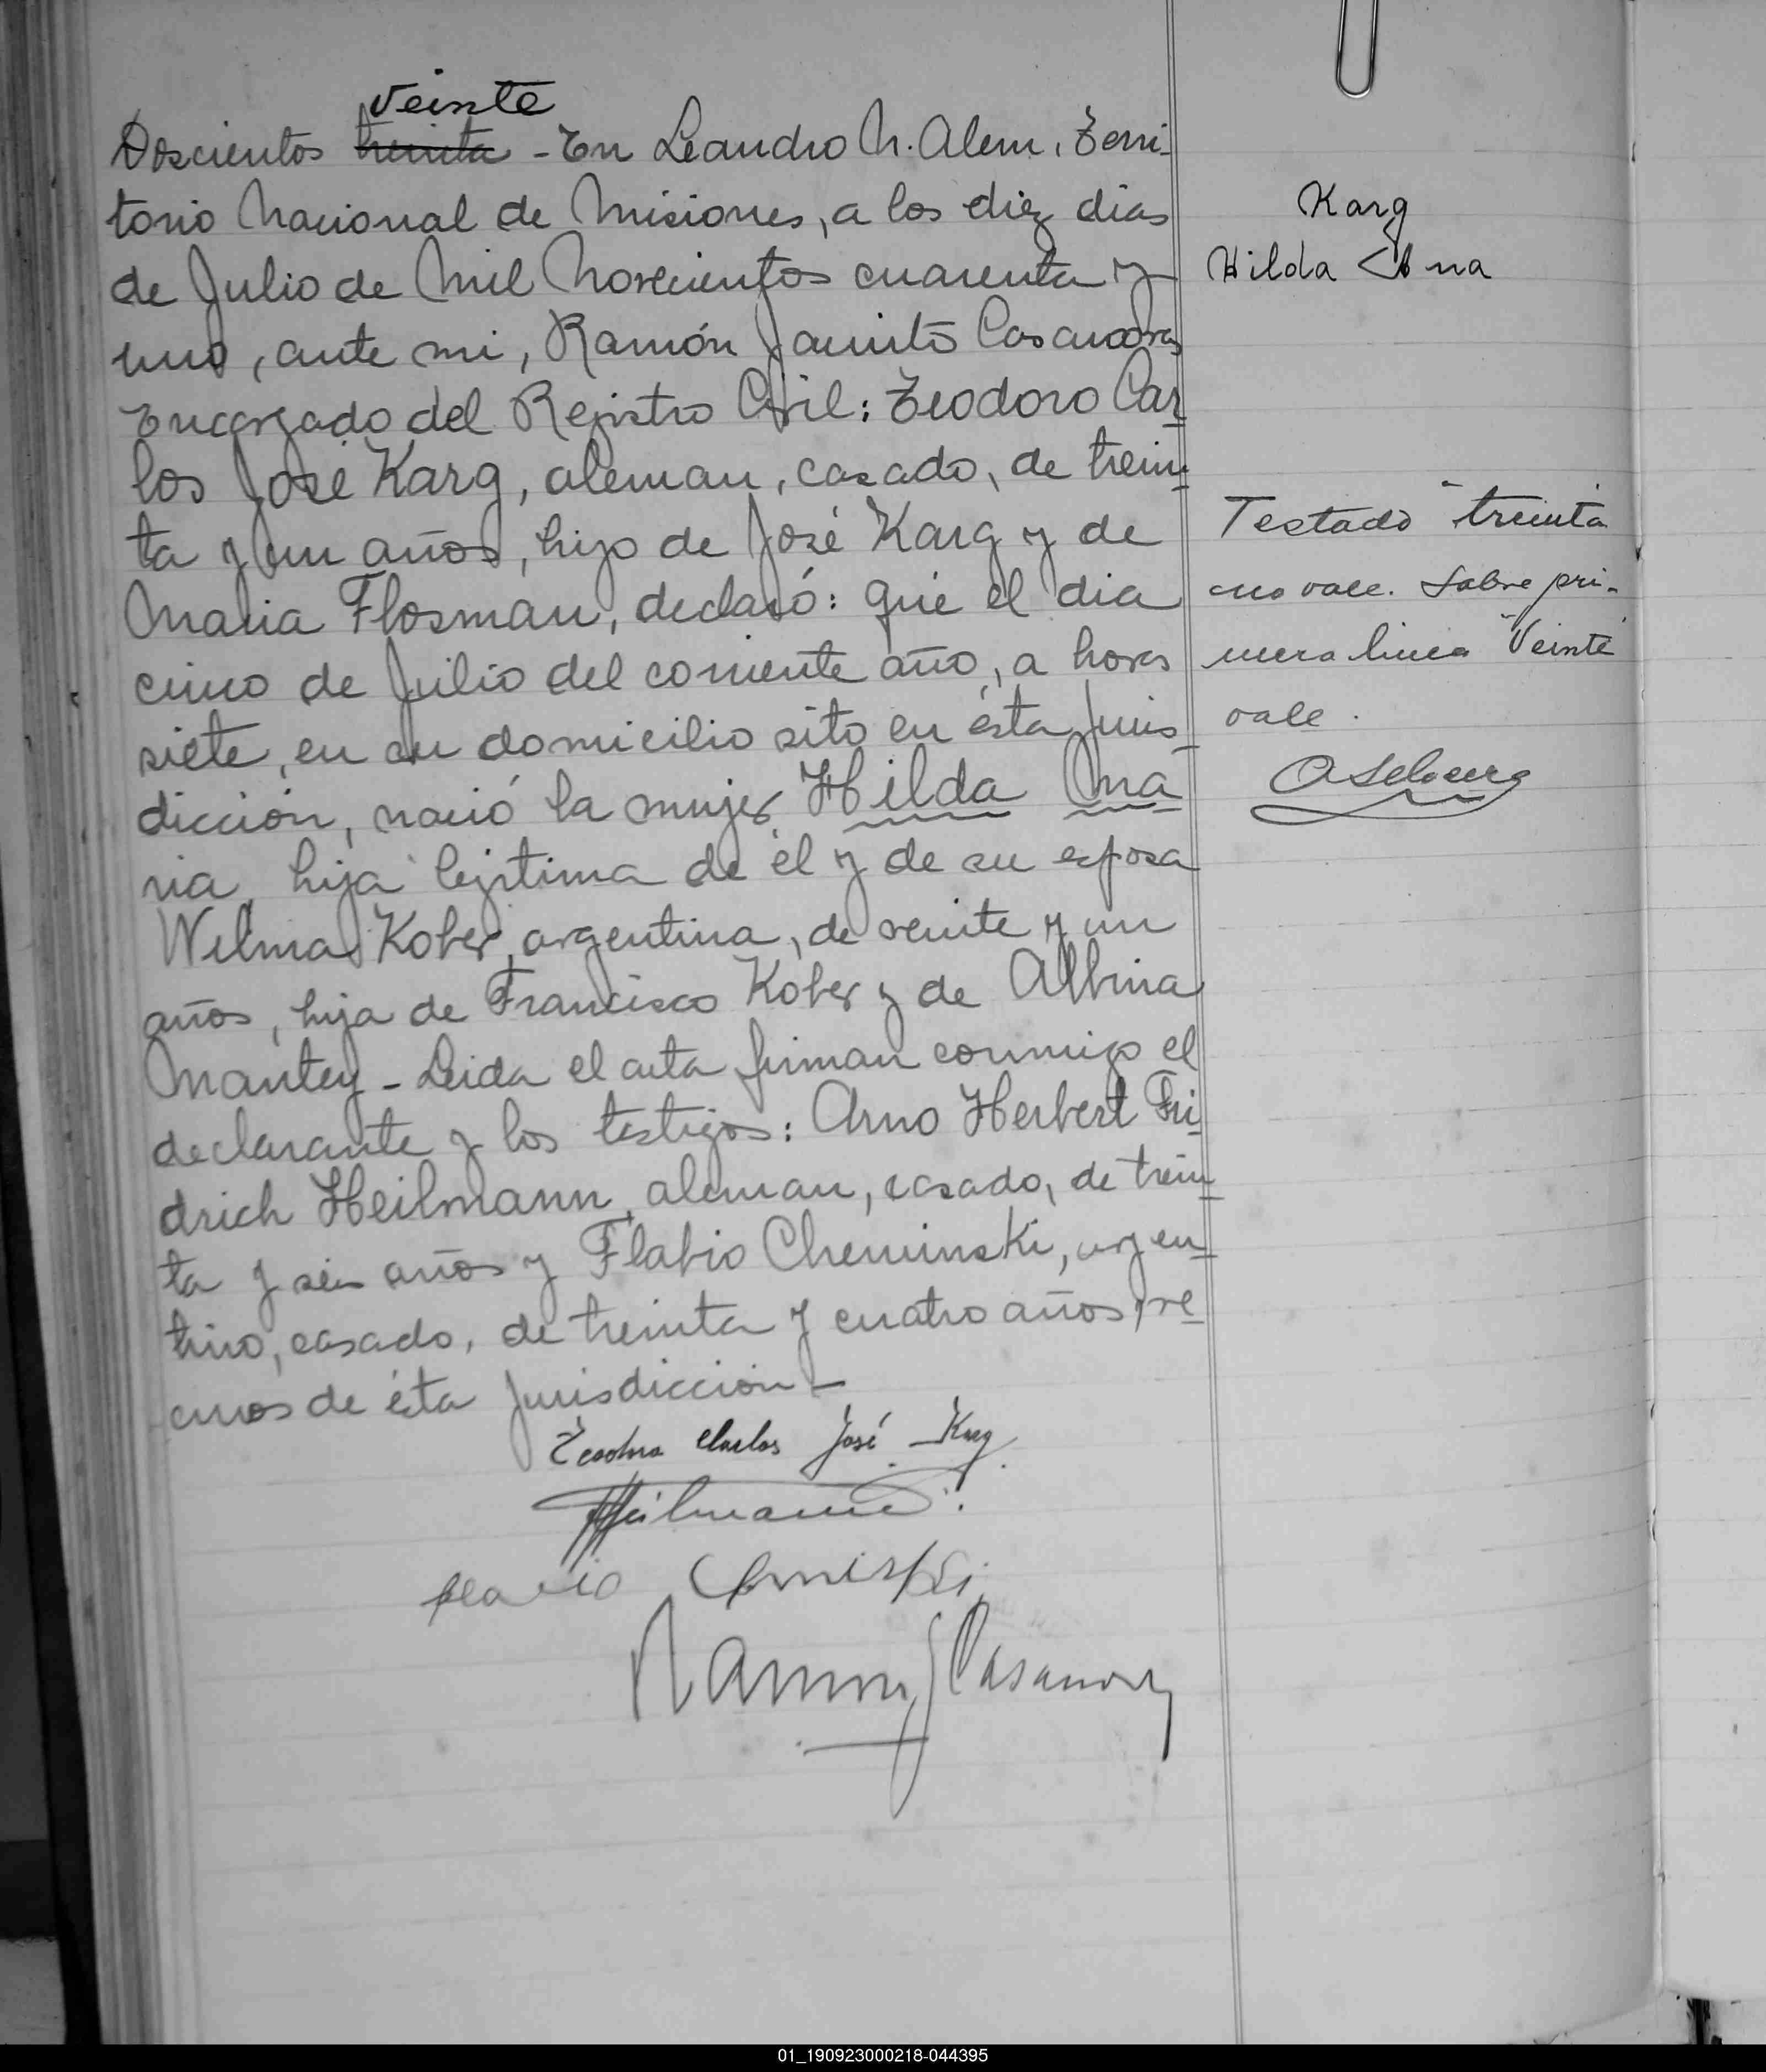 Veinte
Doscientos treinta - En Leandro N. Alem, Terri-
torio Nacional de Misiones, a los diez dias
de Julio de Mil Novecientos cuarenta y
uno, ante mi, Ramón Jacinto Casanova
Encargado del Registro Civil: Teodoro Car-
los José Karg, aleman, casado, de trein-
ta y un años, hijo de José Karg y de
Maria Flosman, declaró: que el dia
cinco de Julio del corriente año, a horas
siete, en su domicilio sito en ésta Juris-
dicción, nació la mujer Hilda Ma
ria, hija legitima de él y de su esposa
Wilma Kober, argentina, de veinte y un
años, hija de Francisco Kober y de Albina
Mantey - Leida el acta firman conmigo el
declarante y los testigos: Arno Herbert Fri-
drich Heilmann, aleman, casado, de trein-
ta y seis años y Flabio Cheminski, argen-
tino, casado, de treinta y cuatro años, ve-
cinos de ésta Jurisdicción -
Teodoro Carlos José Karg
Heilmann
Ramon J Casanova
Karg
Hilda Ana
Testado "treinta
no vale. Sobre pri-
mera linea "Veinte
vale.
01_190923000218-044395